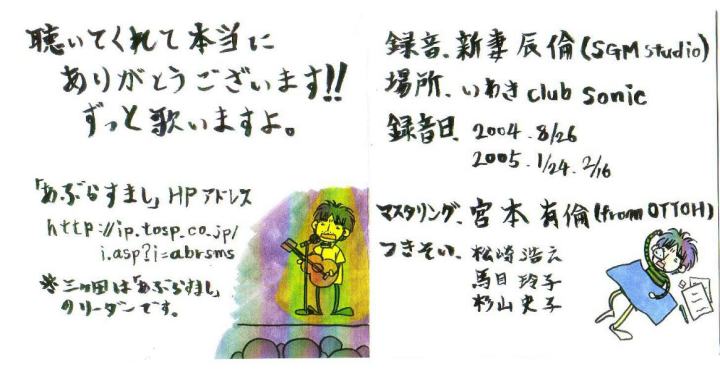 聴いてくれて本当に
ありがとうございます!!
ずっと歌いますよ。
「あぶらすまし」HPアドレス
http://ip.tosp.co.jp/
i.asp?i=abrsms
※三ヶ田は「あぶらすまし」
のリーダンです。
録音、新妻辰倫(SGM studio)
場所、いわき club sonic
録音日、2004. 8/26
2005. 1/24. 2/16
マスタリング、宮本有倫(from OTTOH)
つきそい、松崎浩云
馬目玲子
杉山史子